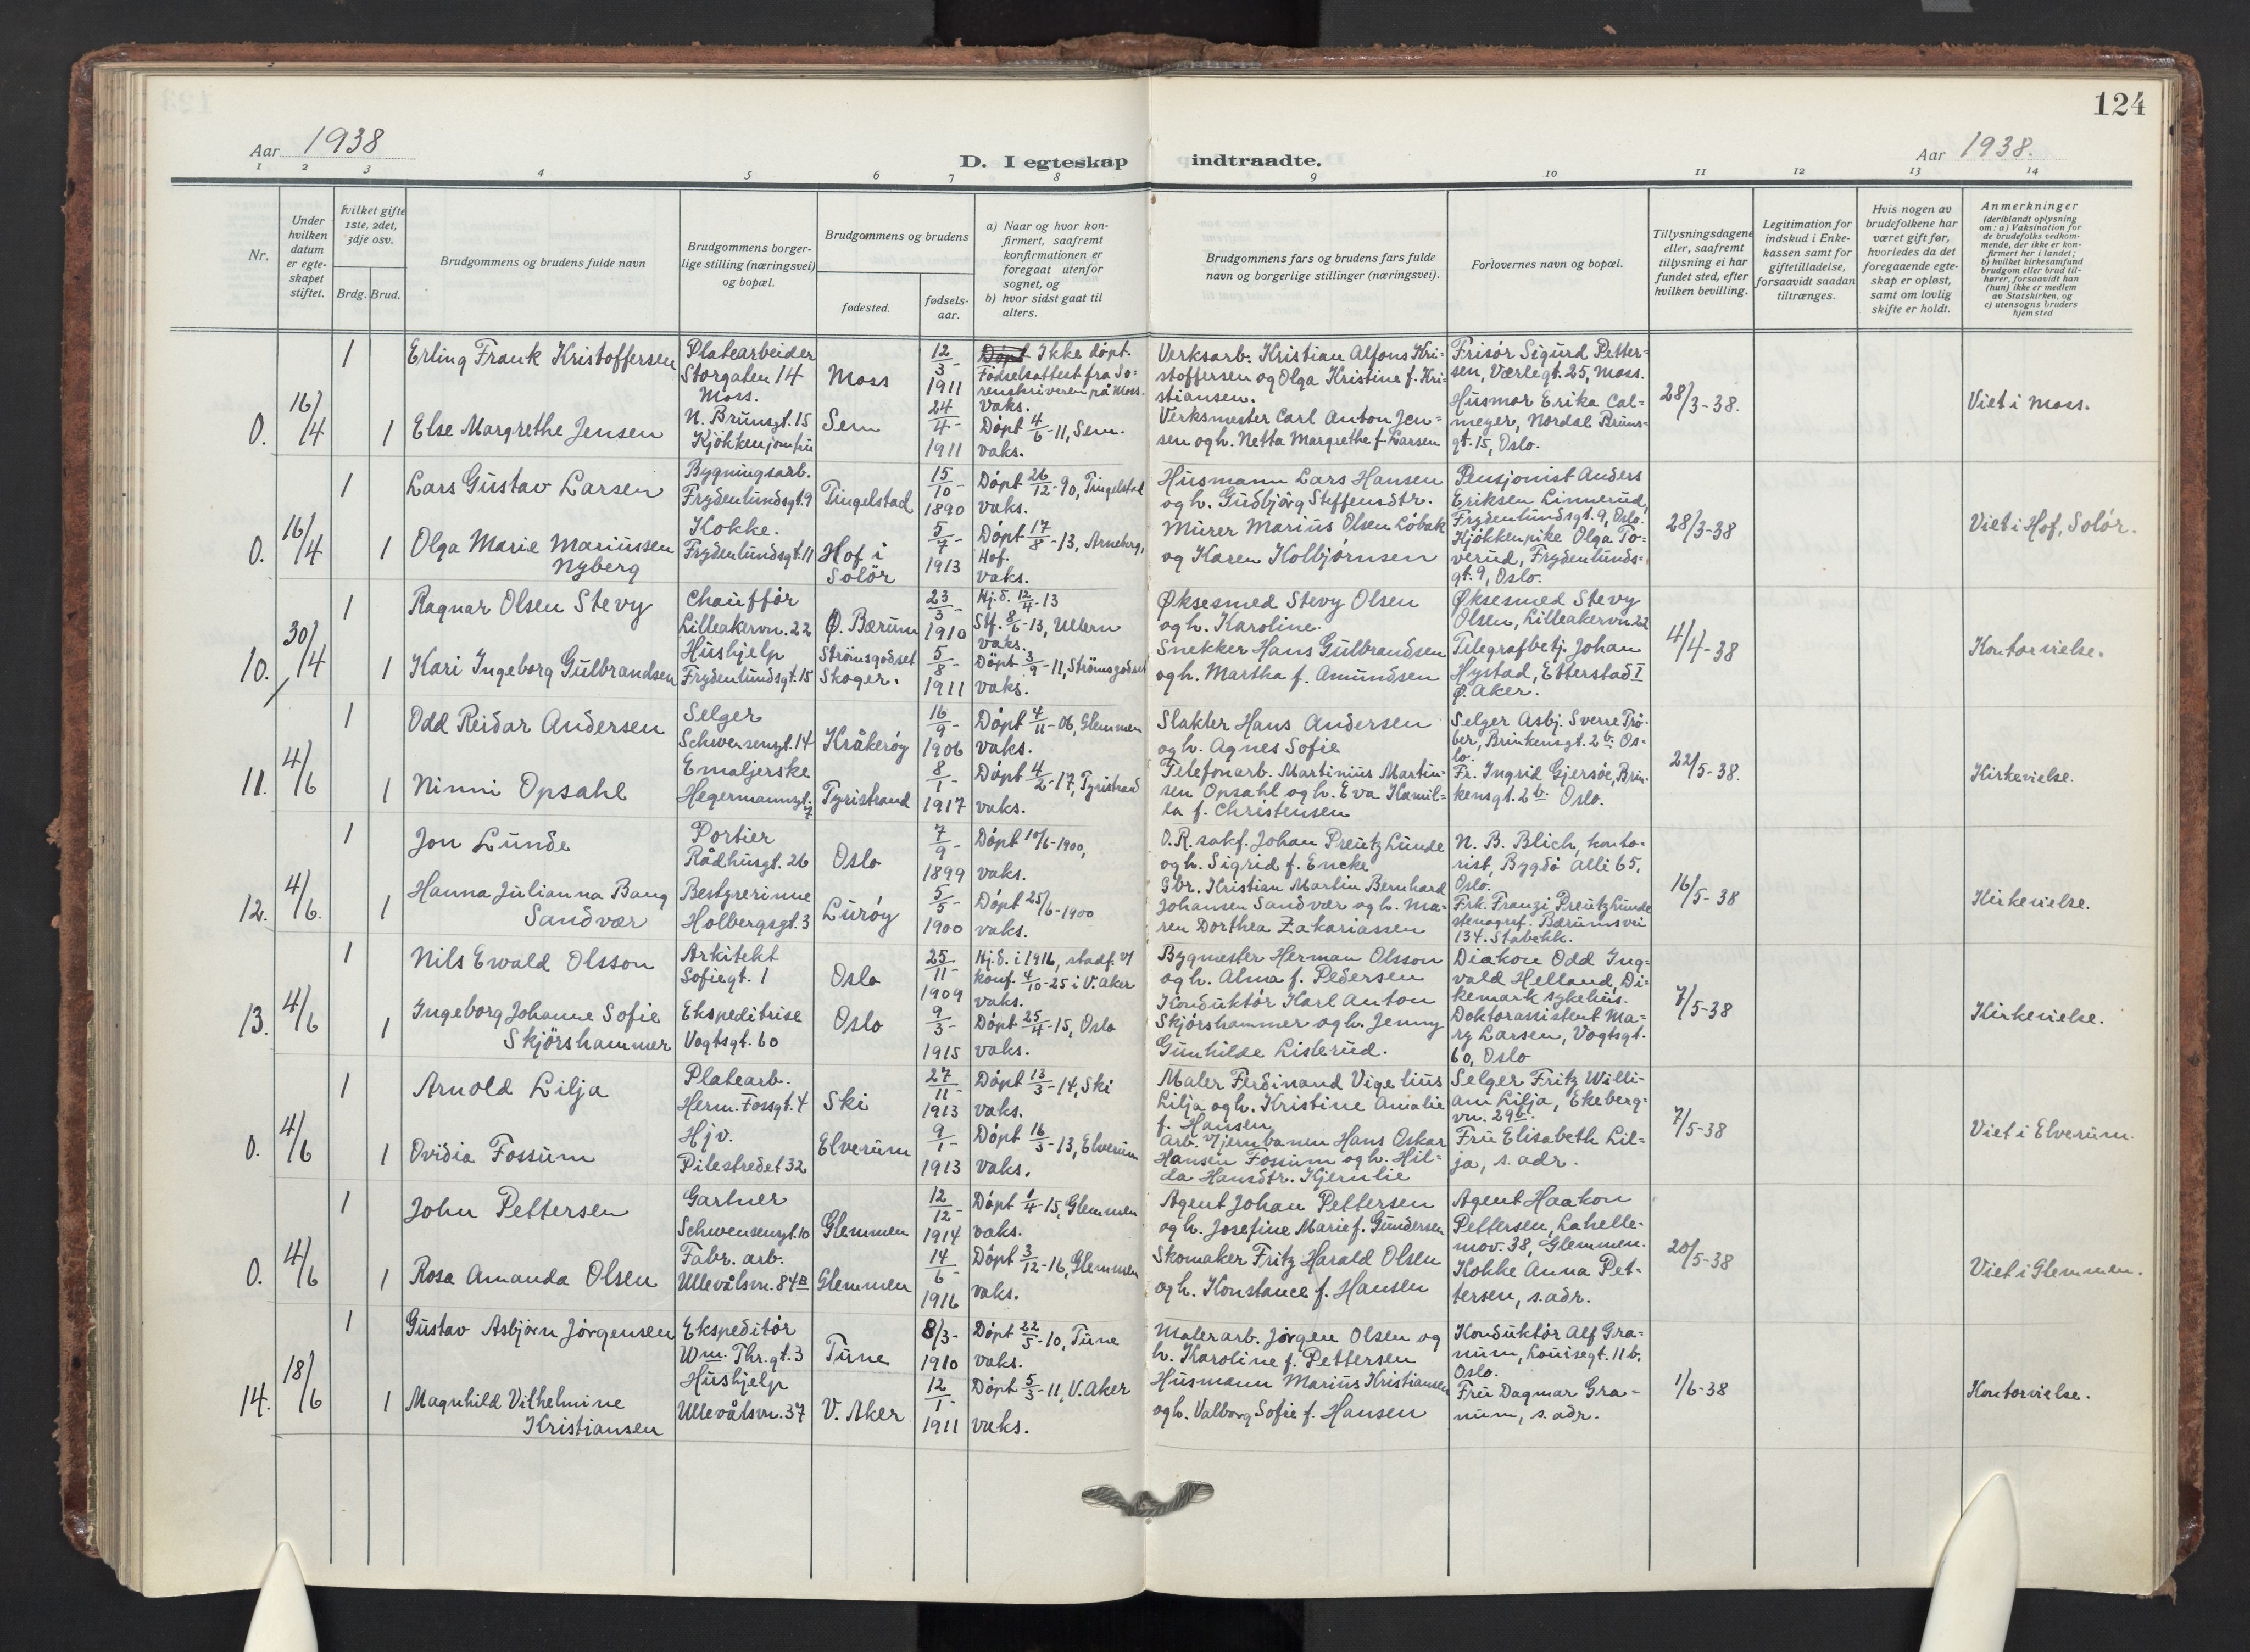 124
Aar 1938
D. I egteskap indtraadte.
Aar 1938.
1 2 3 4 5 6 7 8 9 10 11 12 13 14
Nr.
Under hvilken datum er egte-skapet stiftet.
Hvilket gifte 1ste, 2det, 3dje osv.
Brdg. Brud.
Brudgommens og brudens fulde navn
Brudgommens borger-lige stilling (næringsvei) og bopæl.
Brudgommens og brudens
fødested.
fødsels-aar.
a) Naar og hvor kon-firmert, saafremt konfirmationen er foregaat utenfor sognet, og
b) hvor sidst gaat til alters.
Brudgommens fars og brudens fars fulde navn og borgerlige stillinger (næringsvei).
Forlovernes navn og bopæl.
Tillysningsdagene eller, saafremt tillysning ei har fundet sted, efter hvilken bevilling.
Legitimation for indskud i Enke-kassen samt for giftetilladelse, forsaavidt saadan tiltrænges.
Hvis nogen av brudefolkene har været gift før, hvorledes da det foregaaende egte-skap er opløst, samt om lovlig skifte er holdt.
Anmerkninger
(deriblandt oplysning om: a) Vaksination for de brudefolks vedkom-mende, der ikke er kon-firmert her i landet; b) hvilket kirkesamfund brudgom eller brud til-hører, forsaavidt han (hun) ikke er medlem av Statskirken, og c) utensogns bruders hjemsted
0. 16/4
1 Erling Frank Kristoffersen
Platearbeider
Storgaten 14
Moss.
Moss
12/3-1911
Døpt Ikke døpt.
Fødselsattest fra So-
renskriveren på Moss.
vaks.
Verksarb. Kristian Alfons Kri-
stoffersen og Olga Kristine f. Kri-
stiansen.
Frisör Sigurd Petter-
sen, Værlegt. 25, Moss.
28/3-38.
Viet i Moss.
1 Else Margrethe Jensen
N. Brunsgt. 15
Kjökkenjomfru
Sem
24/4-1911
Døpt 4/6-11, Sem.
vaks.
Verksmester Carl Anton Jen-
sen og h. Netta Margrethe f. Larsen
Husmor Erika Cal-
meyer, Nordal Bruns-
gt. 15, Oslo.
0. 16/4
1 Lars Gustav Larsen
Bygningsarb.
Frydenlundsgt. 9
Tingelstad
15/10-1890
Døpt 26/12-90, Tingelstad
vaks.
Husmann Lars Hansen
og h. Gudbjörg Steffensdtr.
Pensjonist Anders
Eriksen Linnerud,
Frydenlundsgt. 9, Oslo.
28/3-38
Viet i Hof, Solör.
1 Olga Marie Mariussen
Nyberg
Kokke.
Frydenlundsgt. 11
Hof i
Solör
5/7-1913
Døpt 17/8-13, Arneberg,
Hof.
vaks.
Murer Marius Olsen Löbak
og Karen Kolbjörnsen
Kjökkenpike Olga To-
verud, Frydenlunds-
gt. 9, Oslo.
10. 30/4
1 Ragnar Olsen Stevy
Chauffør
Lilleakervn. 22
Ø. Bærum
23/3-1910
Hj.d. 12/4-13
Stf. 8/6-13, Ullern
vaks.
Øksesmed Stevy Olsen
og h. Karoline.
Øksesmed Stevy
Olsen, Lilleakervn 22
4/4-38
Kontorvielse.
1 Kari Ingeborg Gulbrandsen
Hushjelp
Frydenlundsgt. 15
Strömsgodset
Skoger.
5/8-1911
Døpt 3/9-11, Strömsgodset
vaks.
Snekker Hans Gulbrandsen
og h. Martha f. Amundsen
Telegrafbetj. Johan
Hystad, Etterstad I
Ø. Aker.
11. 4/6
1 Odd Reidar Andersen
Selger
Schwensengt. 14
Kråkeröy
16/9-1906
Döpt 4/11-06, Glemmen
vaks.
Slakter Hans Andersen
og h. Agnes Sofie
Selger Asbj. Sverre Trö-
ber, Brinkensgt. 2b. Os-
lo.
22/5-38.
Kirkevielse.
1 Ninni Opsahl
Emaljerske
Hegermannsgt. 7
Tyristrand
8/1-1917
Döpt 4/2-17, Tyristrand
vaks.
Telefonarb. Martinius Martin-
sen Opsahl og h. Eva Kamil-
la f. Christensen
Fr. Ingrid Gjersöe, Brin-
kensgt. 2b. Oslo.
12. 4/6.
1 Jon Lunde
Portier
Rådhusgt. 26
Oslo
7/9-1899
Döpt 10/6-1900,
vaks.
O.R. sakf. Johan Preutz Lunde
og h. Sigrid f. Encke
N. B. Blich, konto-
rist, Bygdö allé 65,
Oslo.
16/5-38
Kirkevielse.
1 Hanna Julianna Bang
Sandvær
Bestyrerinne
Holbergsgt. 3
Luröy
5/5-1900
Döpt 25/6-1900
vaks.
Gbr. Kristian Martin Bernhard
Johansen Sandvær og h. Ma-
ren Dorthea Zakariassen
Frk. Franzi Preutz Lunde
stenograf. Bærumsvei
134. Stabekk.
13. 4/6
1 Nils Ewald Olsson
Arkitekt
Sofiegt. 1
Oslo
25/11-1909
Hj.d. i 1916, stadf. v/
konf. 4/10-25 i V. Aker
vaks.
Bygmester Herman Olsson
og h. Alma f. Pedersen
Diakon Odd Ing-
vald Helland, Di-
kemark sykehus.
7/5-38
Kirkevielse.
1 Ingeborg Johanne Sofie
Skjörshammer
Ekspeditrise
Vogtsgt. 60
Oslo
9/3-1915
Döpt 25/4-15, Oslo
vaks.
Konduktör Karl Anton
Skjörshammer og h. Jenny
Gunhilde Listerud.
Doktorassistent Ma-
ry Larsen, Vogtsgt.
60, Oslo
0. 4/6
1 Arnold Lilja
Platearb.
Herm. Fossgt. 4
Ski
27/11-1913
Döpt 13/3-14, Ski
vaks.
Maler Ferdinand Vigelius
Lilja og h. Kristine Amalie
f. Hansen
Selger Fritz Willi-
am Lilja, Ekeberg-
vn. 29b.
7/5-38
Viet i Elverum.
1 Ovidia Fossum
Hjv.
Pilestredet 32
Elverum
9/1-1913
Döpt 16/3-13, Elverum
vaks.
Arb. v/jernbanen Hans Oskar
Hansen Fossum og h. Hil-
da Hansdtr. Kjernlie
Fru Elisabeth Lil-
ja, s. adr.
0. 4/6
1 John Pettersen
Gartner
Schwensengt. 10
Glemmen
12/12-1914
Döpt 1/4-15, Glemmen
vaks.
Agent Johan Pettersen
og h. Josefine Marie f. Gundersen
Agent Haakon
Pettersen, Lahelle-
mov. 38, Glemmen.
20/5-38
Viet i Glemmen.
1 Rosa Amanda Olsen
Fabr. arb.
Ullevålsvn. 84B
Glemmen
14/6-1916
Döpt 3/12-16, Glemmen
vaks.
Skomaker Fritz Harald Olsen
og h. Konstance f. Hansen
Kokke Anna Pet-
tersen, s. adr.
14. 18/6
1 Gustav Asbjörn Jörgensen
Ekspeditör
Wm. Thr.gt. 3
Tune
8/3-1910
Döpt 22/5-10, Tune
vaks.
Malerarb. Jörgen Olsen og
h. Karoline f. Pettersen
Konduktör Alf Gra-
num, Louisegt. 11b,
Oslo.
1/6-38
Kontorvielse.
1 Magnhild Vilhelmine
Kristiansen
Hushjelp
Ullevålsvn. 37
V. Aker
12/1-1911
Döpt 5/3-11, V. Aker
vaks.
Husmann Marius Kristiansen
og h. Valborg Sofie f. Hansen
Fru Dagmar Gra-
num, s. adr.